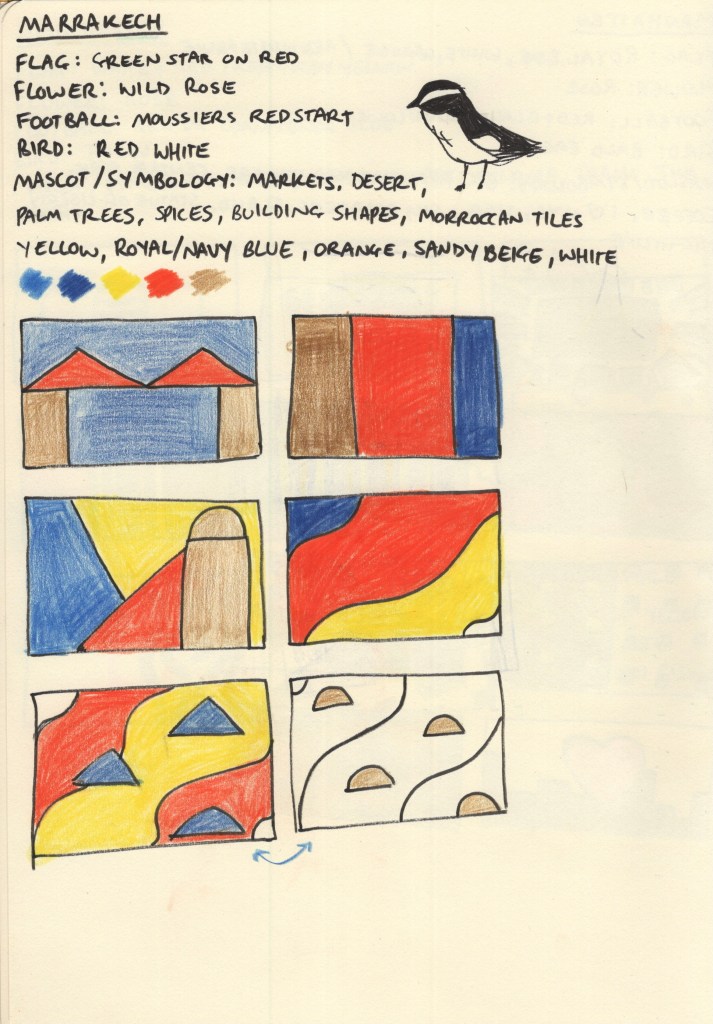 MARRAKECH
FLAG: GREEN STAR ON RED
FLOWER: WILD ROSE
FOOTBALL: MOUSSIERS REDSTART
BIRD: RED WHITE
MASCOT/SYMBOLOGY: MARKETS, DESERT,
PALM TREES, SPICES, BUILDING SHAPES, MORROCCAN TILES
YELLOW, ROYAL/NAVY BLUE, ORANGE, SANDY BEIGE, WHITE